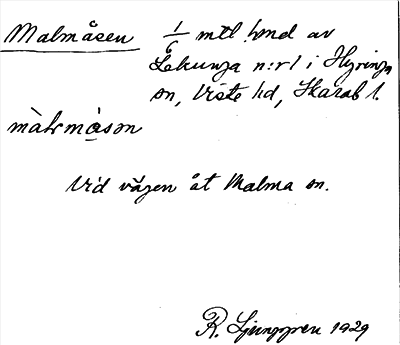 Malmåsen 1/6 mtl hmd av
Lekunga n:r 1 i Hyringa
sn, Viste hd, Skarab l.
màlmåsen
Vid vägen åt Malma sn.
R. Ljunggren 1929